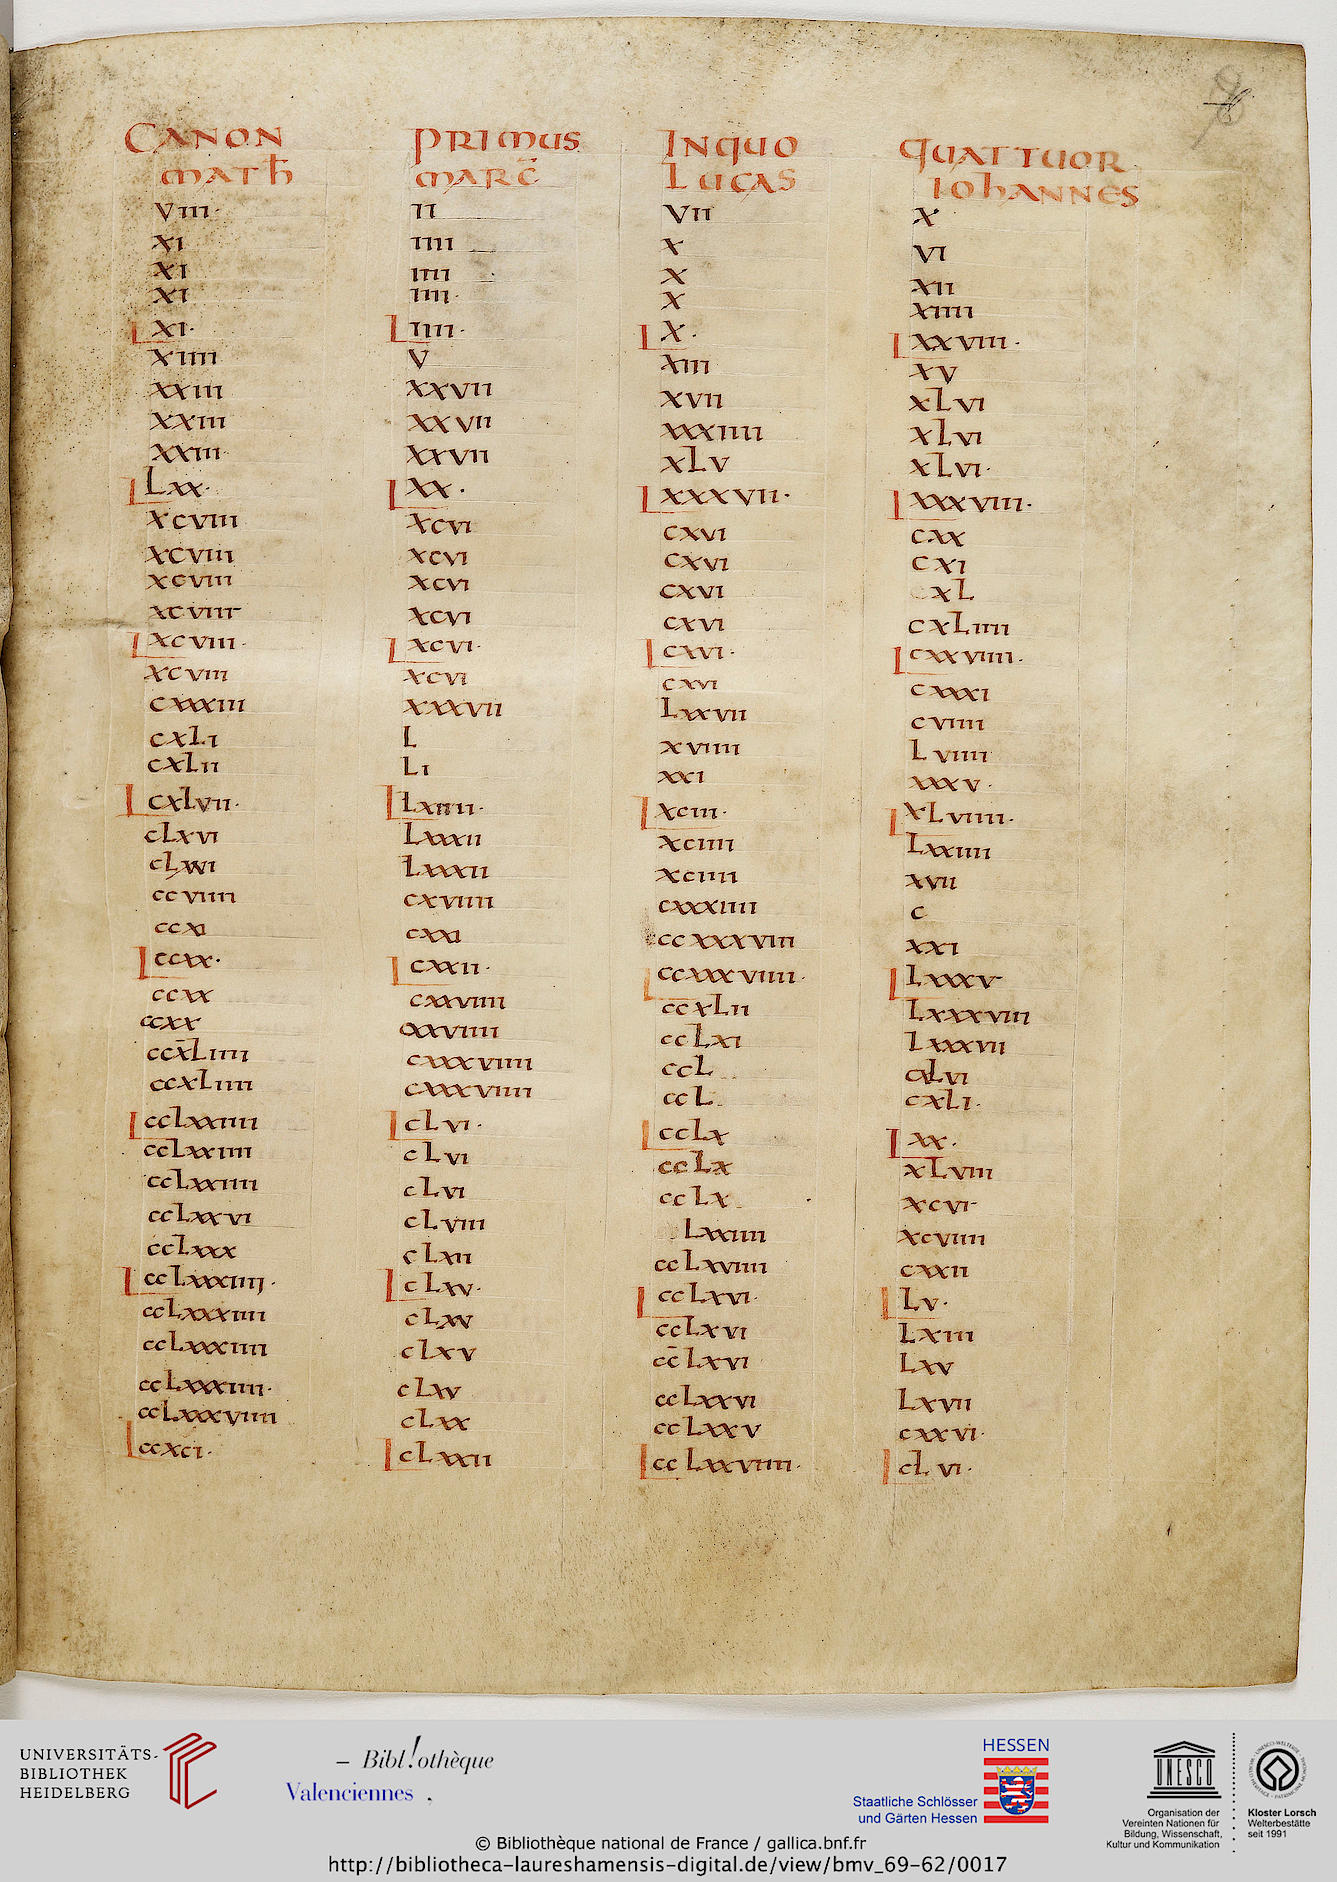 CANON PRIMUS INQUO QUATTUOR
MATH MARC LUCAS IOHANNES
VIII· II VII X
XI IIII X VI
XI IIII X XII
XI IIII· X XIIII
XI· IIII· X· XXVIII·
XIIII V XIII XV
XXIII XXVII XVII XLVI
XXIII XXVII XXXIIII XLVI
XXIII XXVII XLV XLVI·
LXX· XX· XXXVII· XXXVIII·
XCVIII XCVI CXVI CXX
XCVIII XCVI CXVI CXI
XCVIII XCVI CXVI CXL
XCVIII XCVI CXVI CXLIIII
XCVIII· XCVI· CXVI· CXXVIIII·
XCVIII XCVI CXVI CXXXI
CXXXIII XXXVII LXXVII CVIIII
CXLI L XVIIII LVIIII
CXLII LI XXI XXXV·
CXLVII· LXIIII· XCIII· XLVIIII·
CLXVI LXXXII XCIIII LXXIIII
CLXVI LXXXII XCIIII XVII
CCVIIII CXVIIII CXXXIIII C
CCXI CXXI CCXXXVIII XXI
CCXX· CXXII· CCXXXVIIII· LXXXV
CCXX CXXVIIII CCXLII LXXXVIII
CCXX CXXVIIII CCLXI LXXXVII
CCXLIIII CXXXVIIII CCL CXLVI
CCXLIIII CXXXVIIII CCL CXLI·
CCLXXIIII CLVI· CCLX XX·
CCLXXIIII CLVI CCLX XLVIII
CCLXXIIII CLVI CCLX XCVI
CCLXXVI CLVIII LXXIIII XCVIIII
CCLXXX CLXII CCLXVIIII CXXII
CCLXXXIIII· CLXV· CCLXVI· LV·
CCLXXXIIII CLXV CCLXVI LXIII
CCLXXXIIII CLXV CCLXVI LXV
CCLXXXIIII· CLXV CCLXXVI LXVII
CCLXXXVIIII CLXX CCLXXV CXXVI·
CCXCI· CLXXII CCLXXVIIII· CLVI·
UNIVERSITÄTS-
BIBLIOTHEK
HEIDELBERG
– Bibl!othèque
Valenciennes
HESSEN
Staatliche Schlösser
und Gärten Hessen
UNESCO
Organisation der
Vereinten Nationen für
Bildung, Wissenschaft,
Kultur und Kommunikation
Kloster Lorsch
Welterbestätte
seit 1991
© Bibliothèque national de France / gallica.bnf.fr
http://bibliotheca-laureshamensis-digital.de/view/bmv_69-62/0017